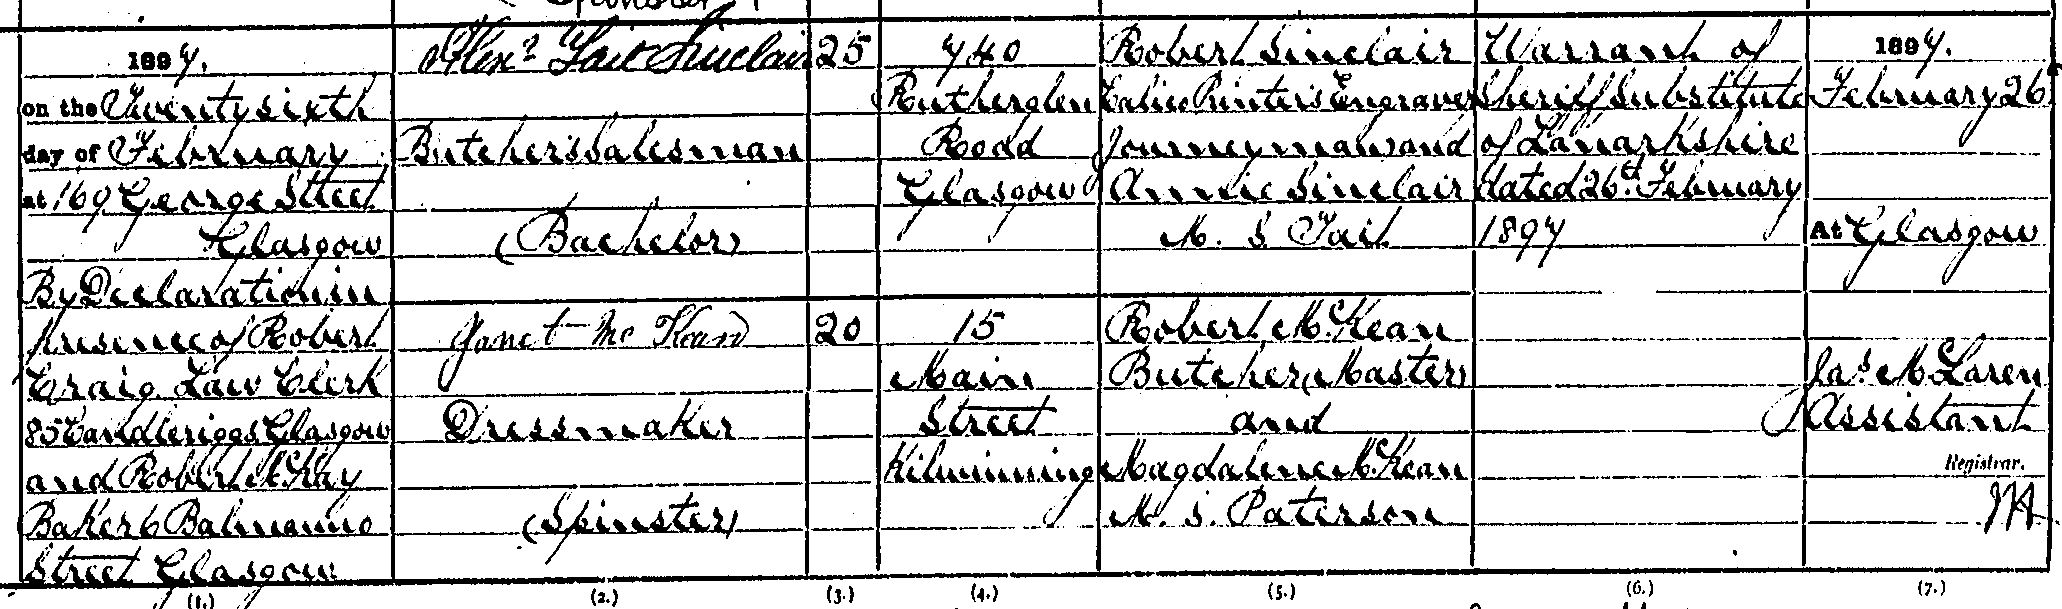 1897.
on the Twentysixth
day of February
at 169 George Street
Glasgow
By Declaration in
presence of Robert
Craig Law Clerk
85 Candleriggs Glasgow
and Robert McKay
Baker 6 Balmanno
Street Glasgow
(1.)
Alexr Tait Sinclair
Butcher's Salesman
(Bachelor)
Janet McKean
Dressmaker
(Spinster)
(2.)
25
20
(3.)
740
Rutherglen
Road
Glasgow
15
Main
Street
Kilwinning
(4.)
Robert Sinclair
Calico Printer's Engraver
Journeyman and
Annie Sinclair
M. S. Tait
Robert McKean
Butcher (Master)
and
Magdalene McKean
M. S. Paterson
(5.)
Warrant of
Sheriff Substitute
of Lanarkshire
dated 26th February
1897
(6.)
1897.
February 26th
At Glasgow
Jas McLaren
Assistant
Registrar.
(7.)